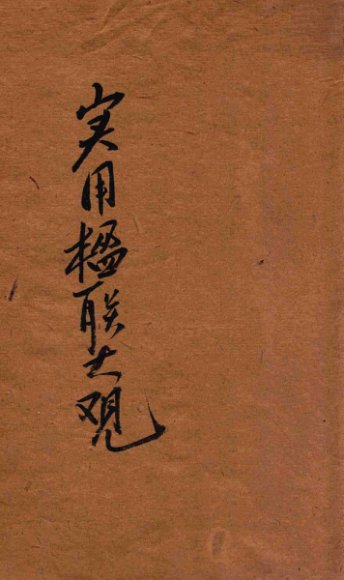 实用楹联大观